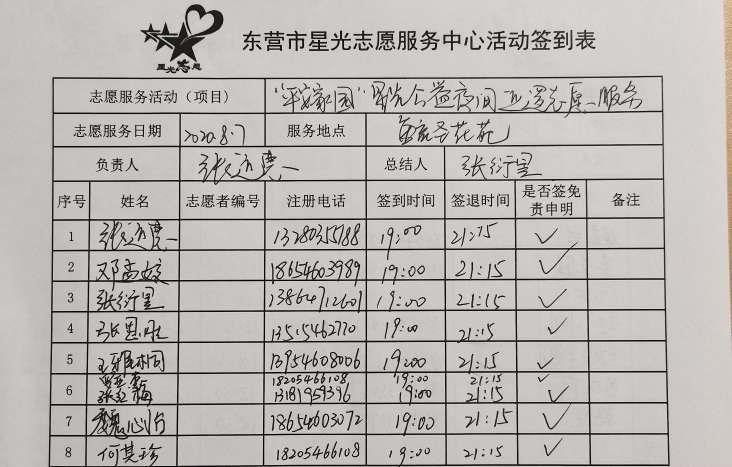 星光志愿
东营市星光志愿服务中心活动签到表
志愿服务活动（项目） "平安家园"星光公益夜间巡逻志愿服务
志愿服务日期 2020.8.7 服务地点 花苑
负责人 张 总结人 张衍星
序号 姓名 志愿者编号 注册电话 签到时间 签退时间 是否签免责申明 备注
1 张 13280355188 19:00 21:15 ✓
2 邓孟姣 18654603989 19:00 21:15 ✓
3 张衍星 13864712601 19:00 21:15 ✓
4 张恩旺 13515462770 19:00 21:15 ✓
5 13954608006 19:00 21:15 ✓
18205466108 19:00 21:15 ✓
6 张红梅 13181959396 19:00 21:15 ✓
7 魏心怡 18654603072 19:00 21:15 ✓
8 何其珍 18205466108 19:00 21:15 ✓